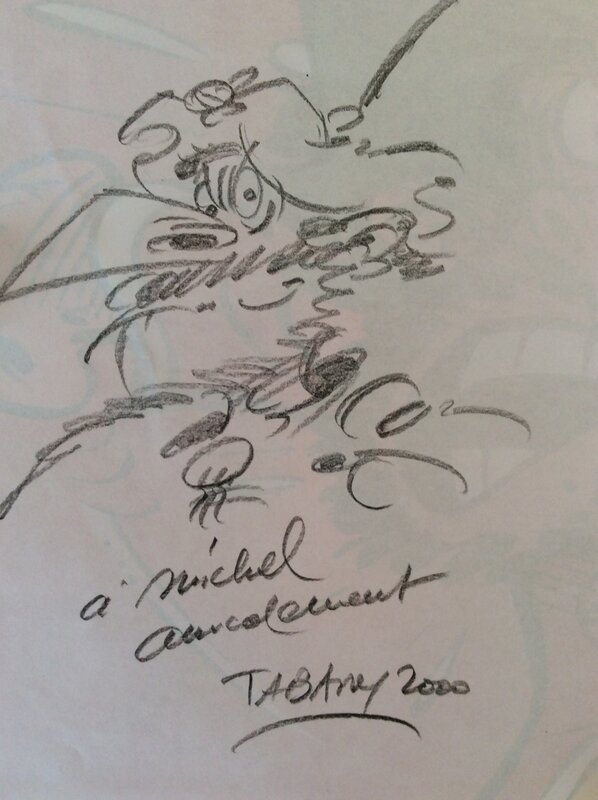 à michel
amicalement
TABARY 2000